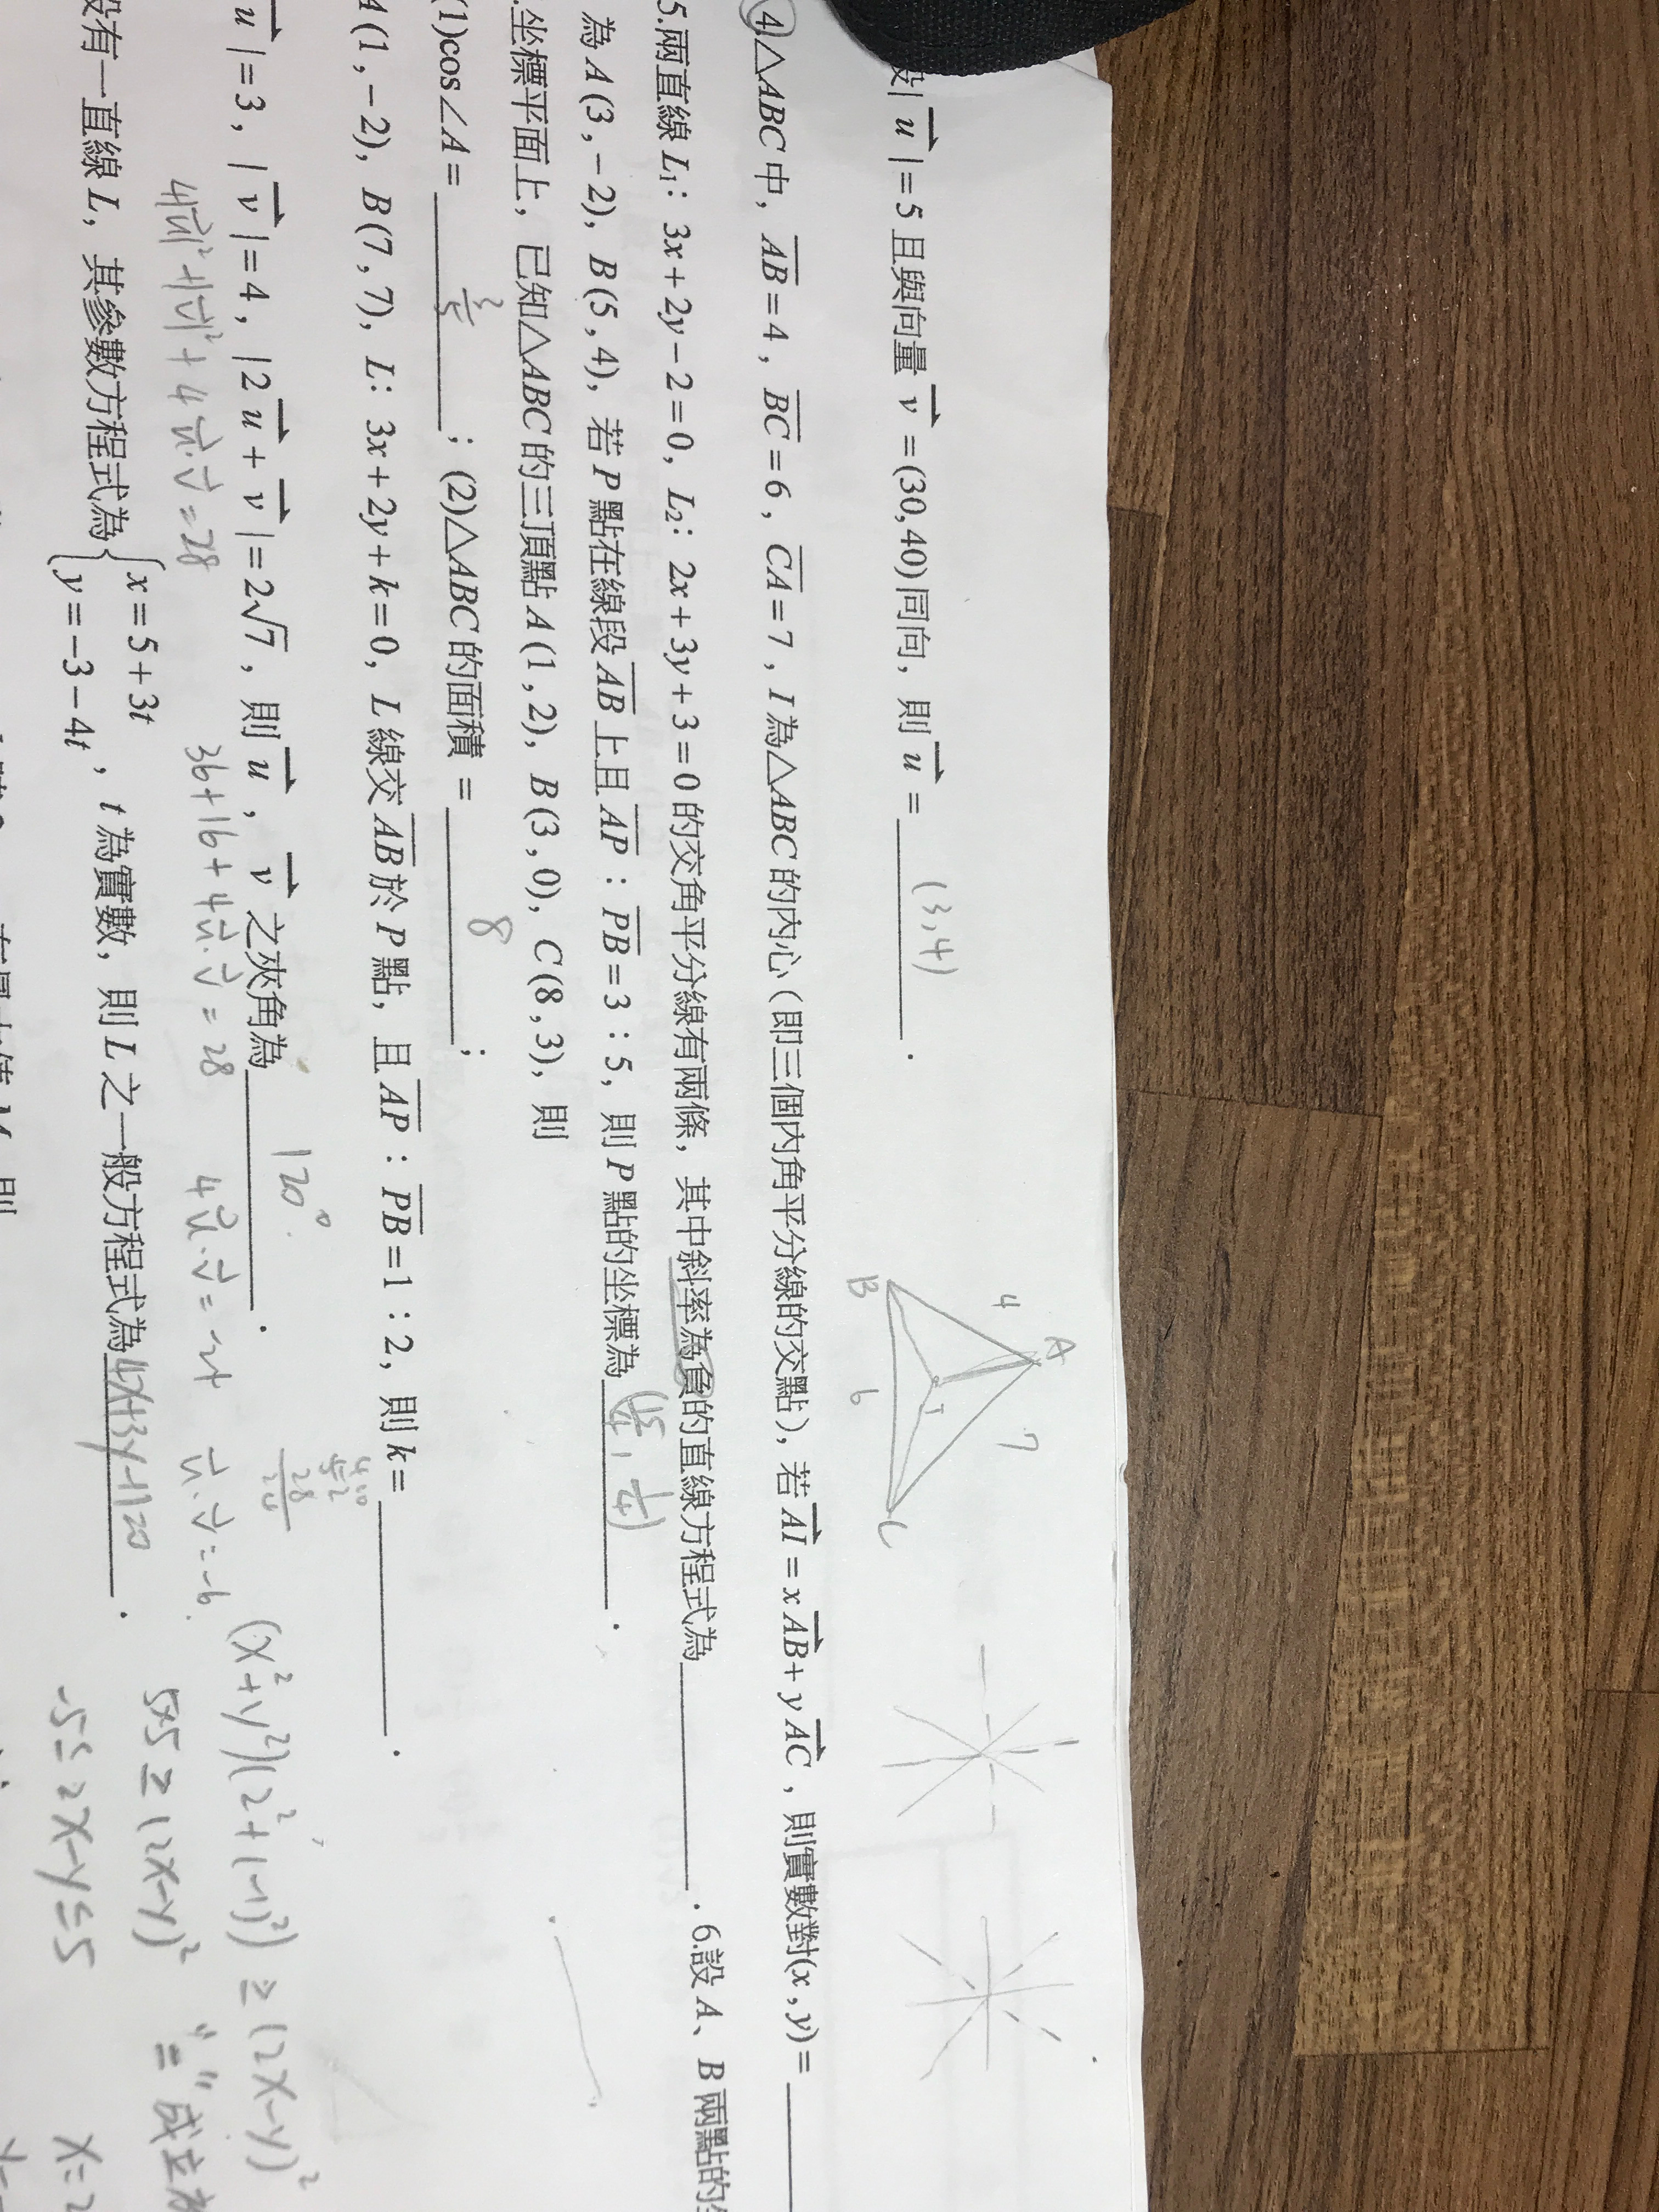 設|u|=5且與向量v=(30,40)同向，則u=(3,4)．
A
4
7
B
I
6
C
4.△ABC中，AB=4，BC=6，CA=7，I為△ABC的內心（即三個內角平分線的交點），若AI=xAB+yAC，則實數對(x,y)=
5.兩直線L₁：3x+2y−2=0，L₂：2x+3y+3=0的交角平分線有兩條，其中斜率為負的直線方程式為．6.設A、B兩點的
為A(3,−2)，B(5,4)，若P點在線段AB上且AP：PB=3：5，則P點的坐標為(15/4, 1/4)．
.坐標平面上，已知△ABC的三頂點A(1,2)，B(3,0)，C(8,3)，則
(1)cos∠A=3/5；(2)△ABC的面積=8；
A(1,−2)，B(7,7)，L：3x+2y+k=0，L線交AB於P點，且AP：PB=1：2，則k=．
|u|=3，|v|=4，|2u+v|=2√7，則u，v之夾角為120°．
4|u|²+|v|²+4u·v=28
36+16+4u·v=28
4u·v=-24
u·v=-6
設有一直線L，其參數方程式為{x=5+3t
y=−3−4t，t為實數，則L之一般方程式為4x+3y-11=0．
(x²+y²)(2²+(-1)²)≥(2x-y)²
5×5≥(2x-y)²
"="成立
-5≤2x-y≤5